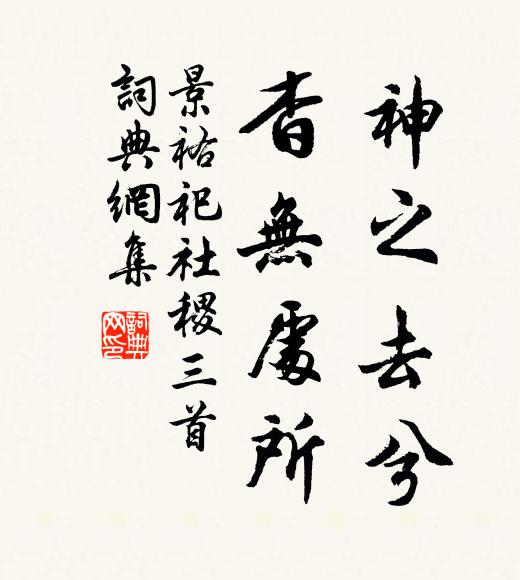 神之去兮
杳無處所
景祐祀社稷三首
詞典網集
詞典网印